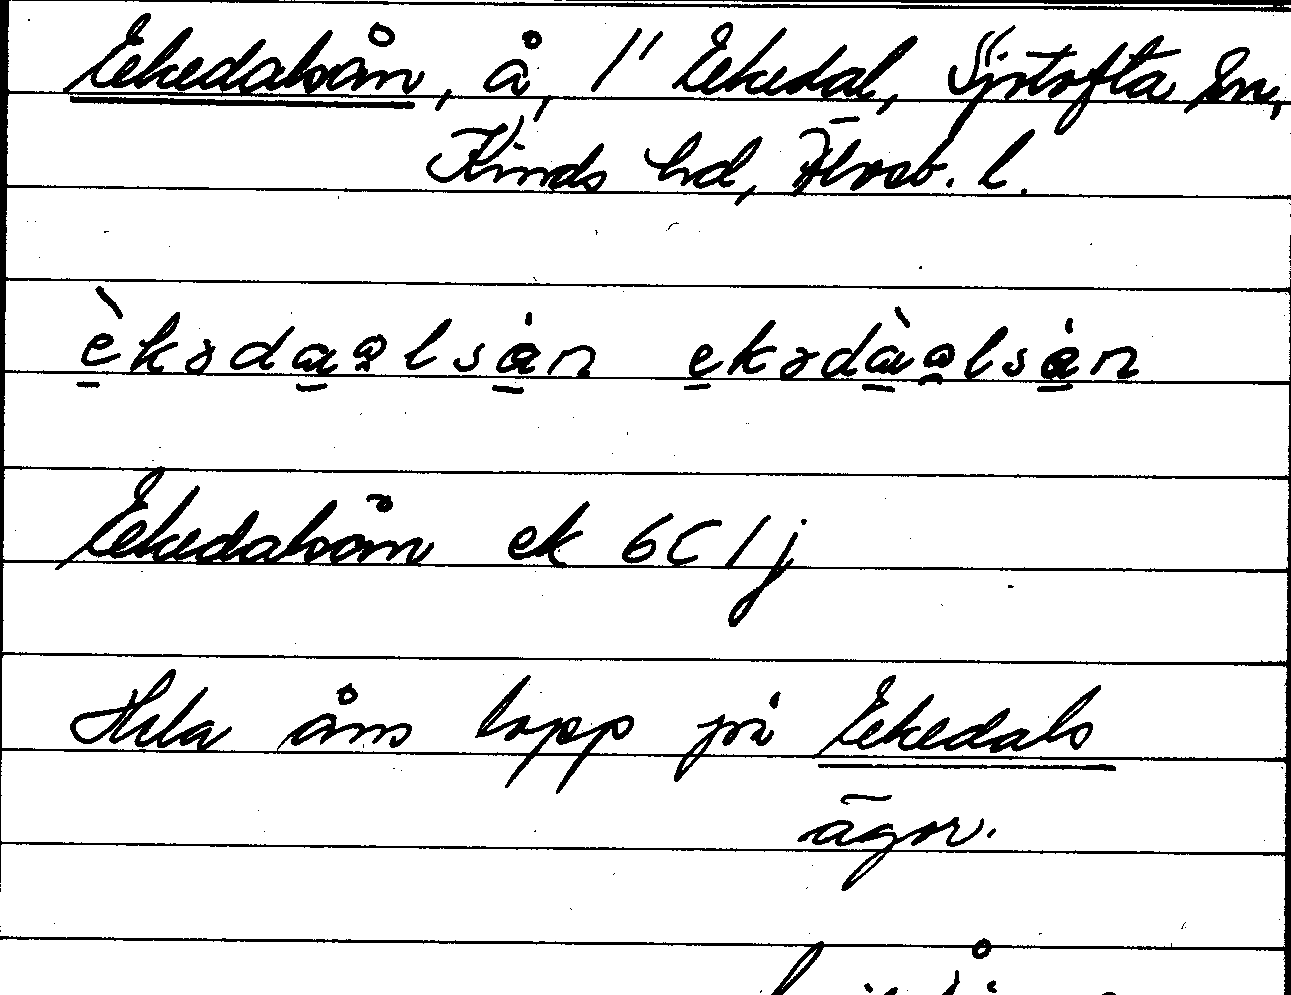 Ekedalsån, å, 1" Ekedal, Sjötofta sn,
Kinds hd, Älvsb. l.
èkədaalsån ekədàalsån
Ekedalsån ek 6C 1j
Hela åns lopp på Ekedals
ägor.